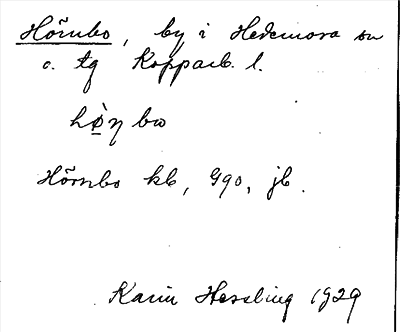 Hörnbo, by i Hedemora sn
o. tg Kopparb. l.
hø̀ɳ bω
Hörnbo kb, Gqo, jb.
Karin Hessling 1929